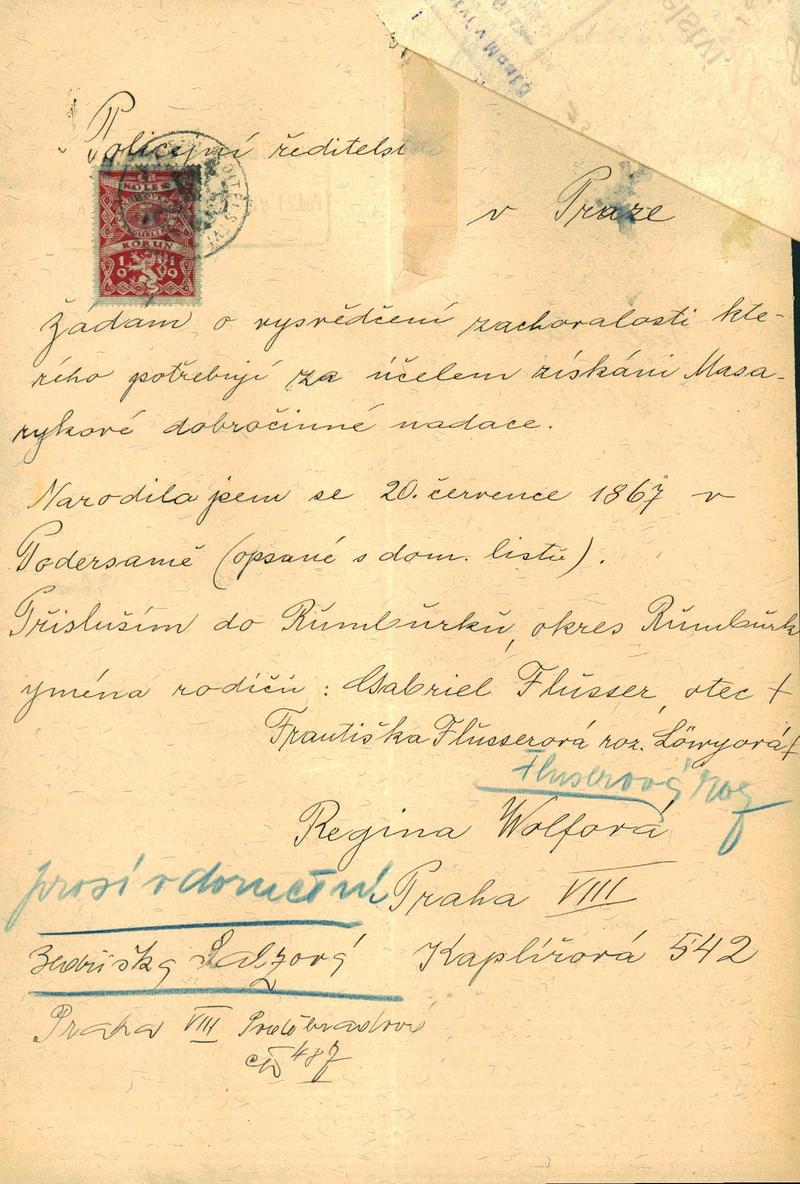 Policejní ředitelství
v Praze
KOLEK
KORUN
1919
Žádám o vysvědčení zachovalosti kte-
rého potřebuji za účelem získáni Masa-
rykové dobročinné nadace.
Narodila jsem se 20. července 1867 v
Podersamě (opsané s dom. listu).
Přislušim do Rumburku, okres Rumburk
yména rodičů : Gabriel Flusser, otec †
Františka Flusserová roz. Löwyová †
Fluserová roz
Regina Wolfová
prosí o doručení
Praha VIII
Salzová
Kaplířová 542
Praha VIII Poděbradova
čp 487